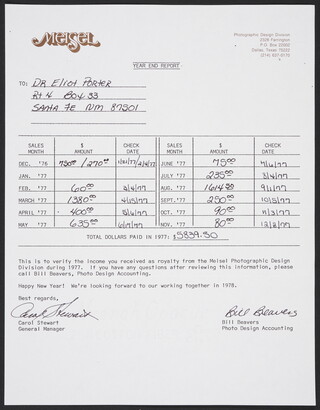 Meisel
Photographic Design Division
2026 Farrington
P.O. Box 20002
Dallas, Texas 75222
YEAR END REPORT
TO: DR Eliot Porter
Rt 4 Box 33
Santa Fe NM 87501
SALES MONTH $ AMOUNT CHECK DATE SALES MONTH $ AMOUNT CHECK DATE
DEC. '76 730.00/1270.00 JUNE '77 75.00
JAN. '77 JULY '77 235.00
FEB. '77 60.00 AUG. '77 1614.50
MARCH '77 1380.00 4/15/77 SEPT. '77 250.00 10/5/77
APRIL '77 400.00 5/6/77 OCT. '77 90.00 11/3/77
MAY '77 635.00 NOV. '77 80.00
TOTAL DOLLARS PAID IN 1977:
This is to verify the income you received as royalty from the Meisel Photographic Design
Division during 1977. If you have any questions after reviewing this information, please
call Bill Beavers, Photo Design Accounting.
Happy New Year! We're looking forward to our working together in 1978.
Best regards,
Carol Stewart Bill Beavers
Carol Stewart Bill Beavers
General Manager Photo Design Accounting